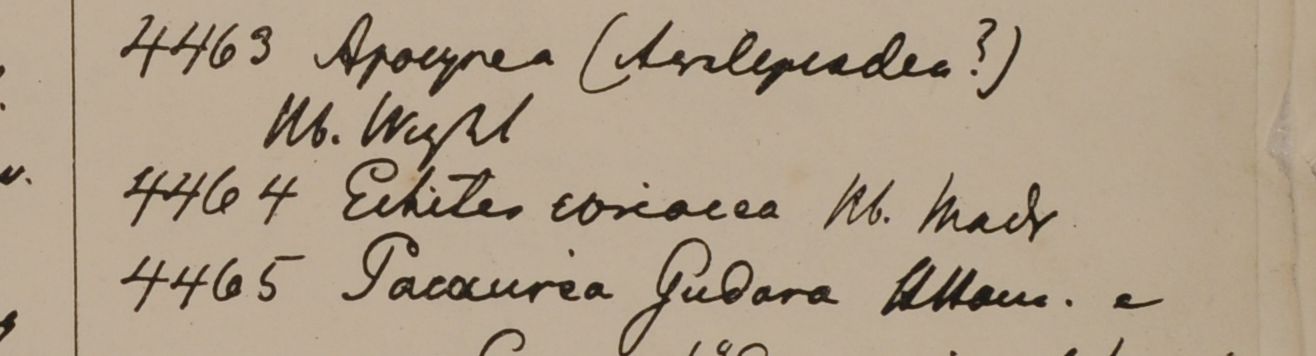 4463 Apocynea (Asclepiadea?)
Hb. Wight
4464 Echites coriacea Hb. Madr
4465 Pacouria Gudara HHam. e